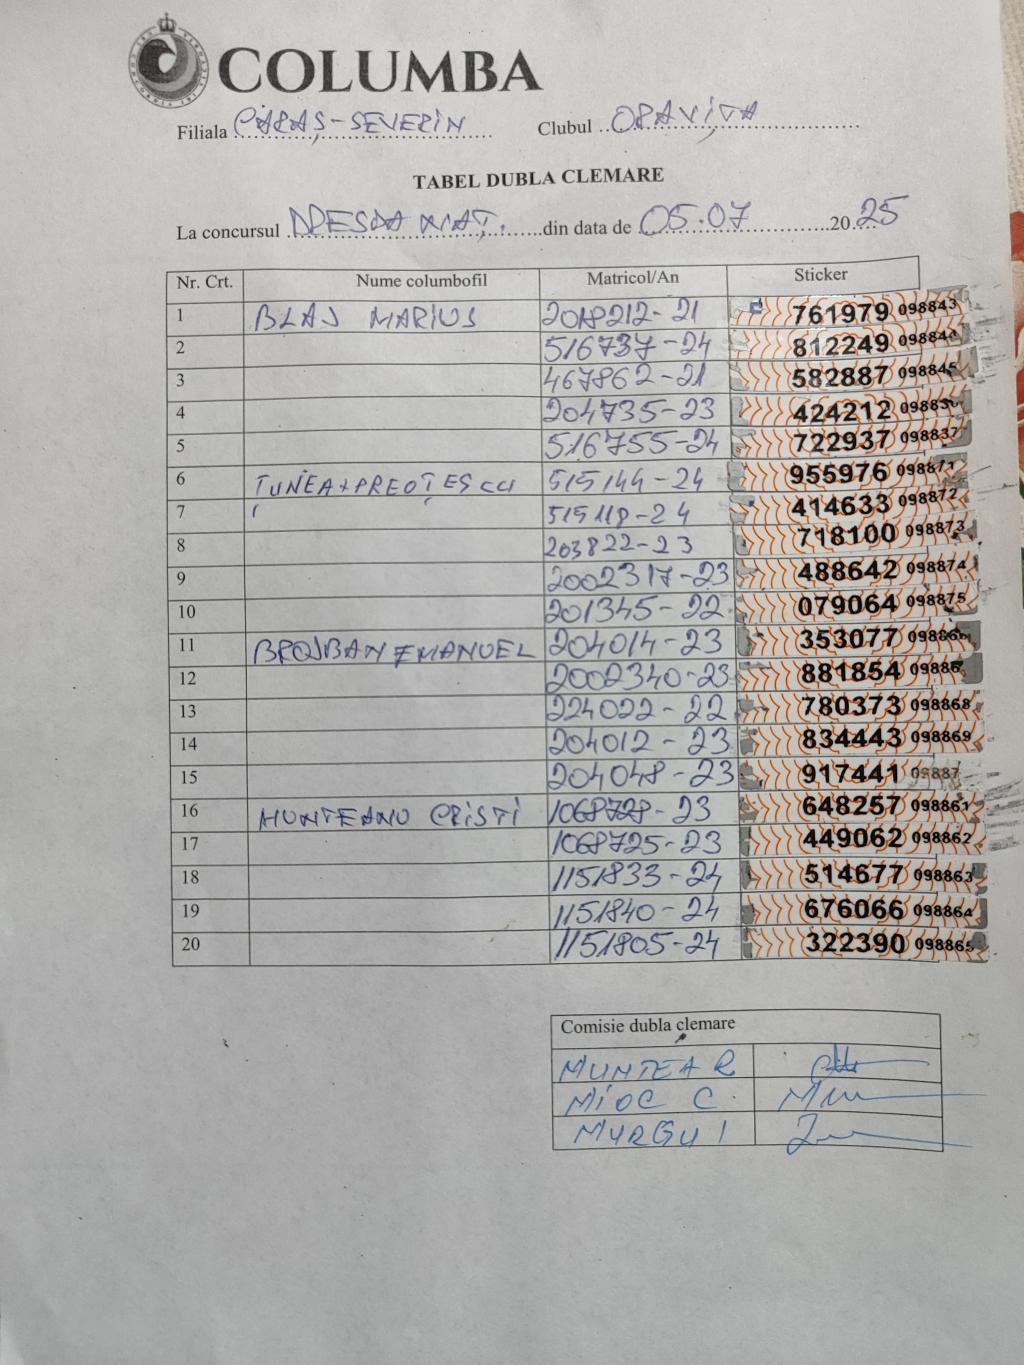 COLUMBA
Filiala CARAȘ-SEVERIN Clubul ORAVIȚA
TABEL DUBLA CLEMARE
La concursul DRESDA NAȚ. din data de 05.07 2025
Nr. Crt. Nume columbofil Matricol/An Sticker
1 BLAJ MARIUS 2018212-21 761979 098843
2 516737-24 812249 098844
3 467862-21 582887 098845
4 204735-23 424212 098836
5 516755-24 722937 098837
6 TUNEA+PREOȚESCU 515144-24 955976 098871
7 515118-24 414633 098872
8 203822-23 718100 098873
9 2002317-23 488642 098874
10 201345-22 079064 098875
11 BROJBAN EMANUEL 204014-23 353077
12 2002340-23 881854
13 224022-22 780373 098868
14 204012-23 834443 098869
15 204048-23 917441
16 MUNTEANU CRISTI 1068728-23 648257 098861
17 1068725-23 449062 098862
18 1151833-24 514677 098863
19 1151840-24 676066 098864
20 1151805-24 322390 098865
Comisie dubla clemare
MUNTEA R
MIOC C.
MURGU I